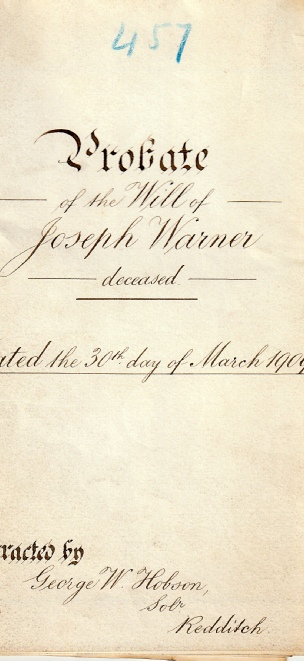 457
Probate
of the Will of
Joseph Warner
deceased
ated the 30th day of March 1909
racted by
George W. Hobson,
Solr
Redditch